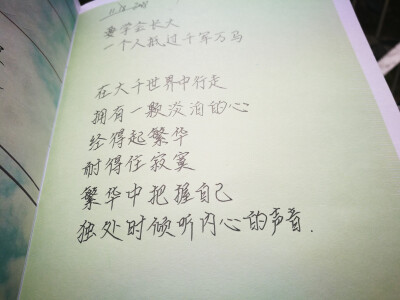 要学会长大
一个人抵过千军万马
在大千世界中行走
拥有一颗淡泊的心
经得起繁华
耐得住寂寞
繁华中把握自己
独处时倾听内心的声音.